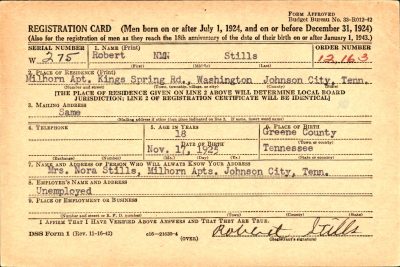 Form Approved
Budget Bureau No. 33-R012-42
REGISTRATION CARD (Men born on or after July 1, 1924, and on or before December 31, 1924)
(Also for the registration of men as they reach the 18th anniversary of the date of their birth on or after January 1, 1943.)
SERIAL NUMBER 1. NAME (Print) ORDER NUMBER
W 275 Robert NMN Stills 12,163
(First) (Middle) (Last)
2. PLACE OF RESIDENCE (Print)
Milhorn Apt. Kings Spring Rd., Washington Johnson City, Tenn.
[THE PLACE OF RESIDENCE GIVEN ON LINE 2 ABOVE WILL DETERMINE LOCAL BOARD
JURISDICTION; LINE 2 OF REGISTRATION CERTIFICATE WILL BE IDENTICAL]
3. MAILING ADDRESS
Same
[Mailing address if other than place indicated on line 2. If same, insert word same]
4. TELEPHONE 5. AGE IN YEARS 6. PLACE OF BIRTH
18 Greene County
DATE OF BIRTH (Town or county)
Nov. 17, Tennessee
(Exchange) (Number) (Mo.) (Day) (Yr.) (State or country)
7. NAME AND ADDRESS OF PERSON WHO WILL ALWAYS KNOW YOUR ADDRESS
Mrs. Nora Stills, Milhorn Apts. Johnson City, Tenn.
8. EMPLOYER'S NAME AND ADDRESS
Unemployed
9. PLACE OF EMPLOYMENT OR BUSINESS
(Number and street or R. F. D. number) (Town) (County) (State)
I AFFIRM THAT I HAVE VERIFIED ABOVE ANSWERS AND THAT THEY ARE TRUE.
Robert Stills
DSS Form 1 (Rev. 11-16-42) (OVER) (Registrant's signature)